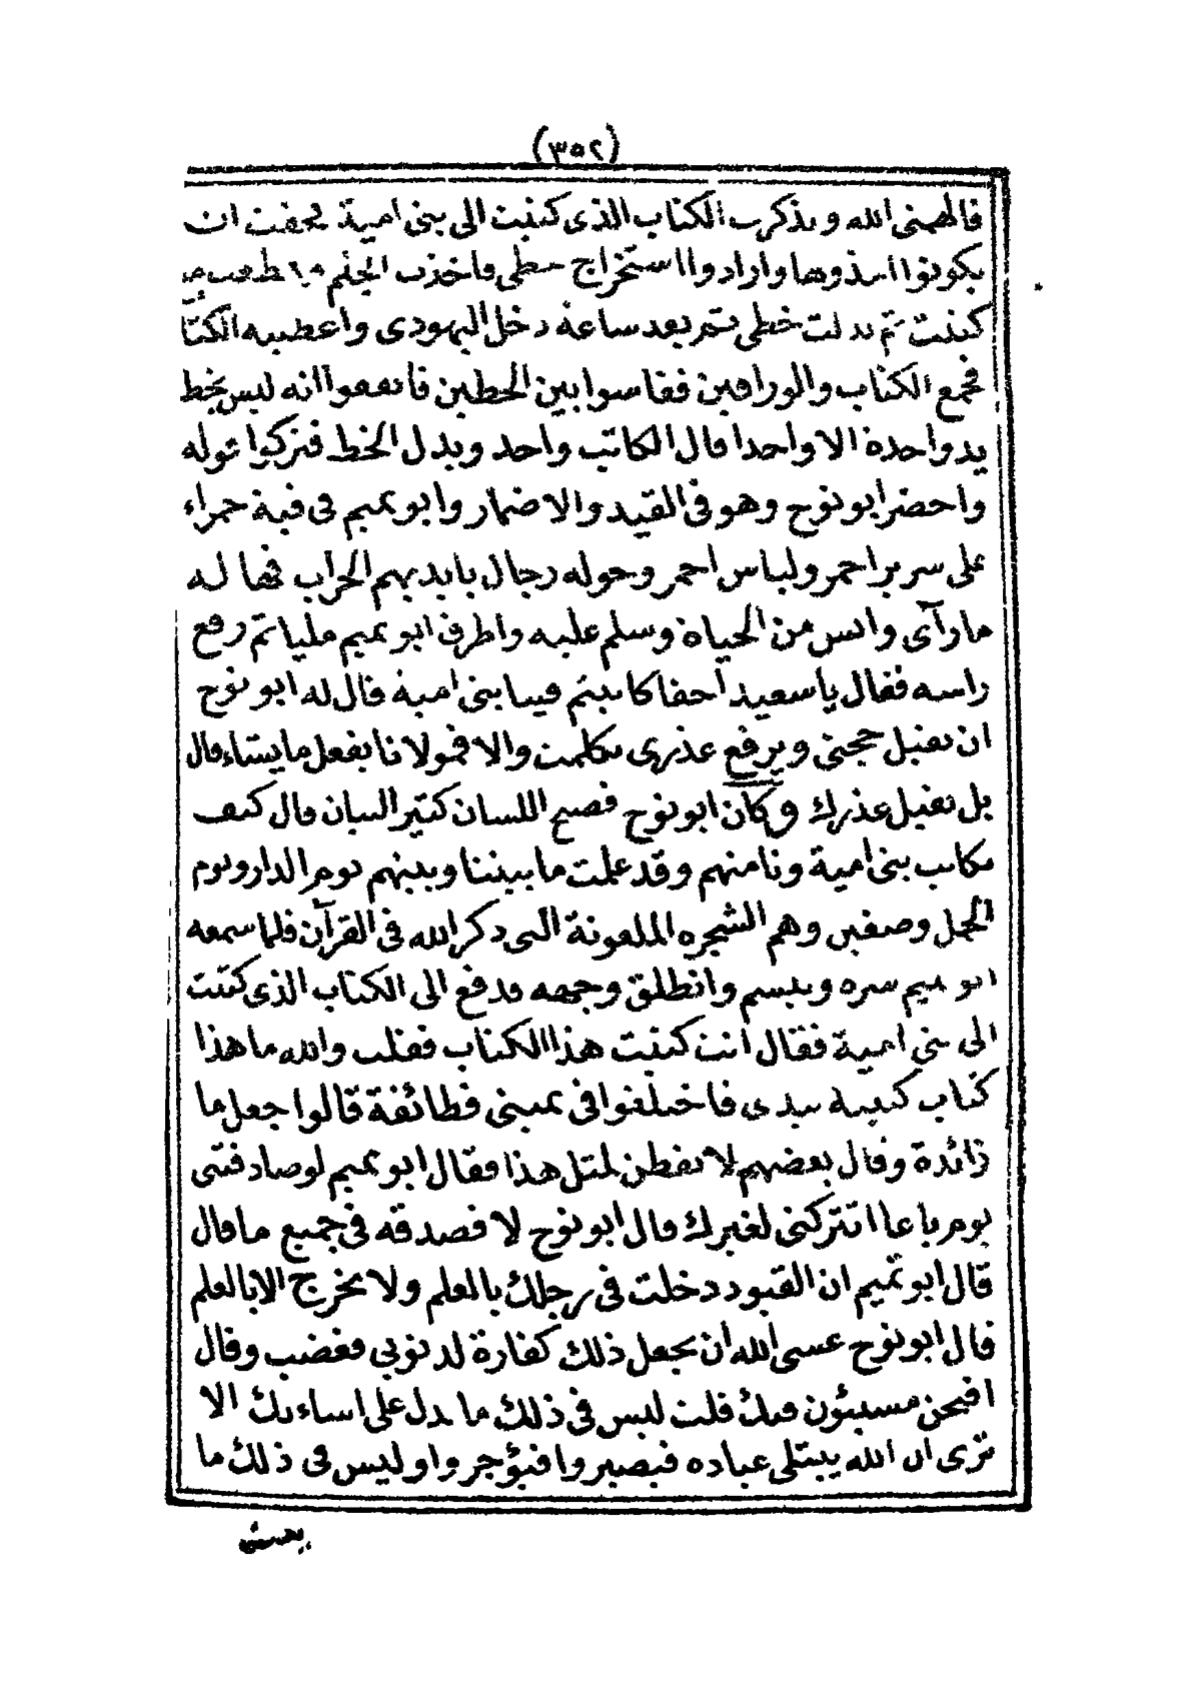 (٣٥٢)
فالهمنى الله وتذكرت الكتاب الذى كتبت الى بنى امية فخفت ان
يكونوا اخذوها وارادوا استخراج خطى فاخذت القلم
كتبت ثم بدلت خطى ثم بعد ساعة دخل اليهودى واعطيته الكتا
فجمع الكتاب والوراقين فقاسوا بين الخطين فاتفقوا انه ليس بخط
يد واحدة الا واحدا قال الكاتب واحد وبدل الخط فتركوا قوله
واحضر ابو نوح وهو فى القيد والاضمار وابو تميم فى قبة حمراء
على سرير احمر ولباس احمر وحوله رجال بايديهم الحراب فهاله
ما رآى وايس من الحياة وسلم عليه واطرق ابو تميم مليا ثم رفع
راسه فقال يا سعيد احقا كاتبتم فينا بنى امية قال له ابو نوح
ان تقبل حجتى ويرفع عذرى تكلمت والا فمولانا يفعل ما يشاء قال
بل نقبل عذرك وكان ابو نوح فصيح اللسان كثير البيان قال كيف
نكاتب بنى امية ونامنهم وقد علمت ما بيننا وبينهم يوم الدار ويوم
الجمل وصفين وهم الشجرة الملعونة التى ذكر الله فى القرآن فلما سمعه
ابو تميم سره وتبسم وانطلق وجهه فدفع الى الكتاب الذى كتبت
الى بنى امية فقال انت كتبت هذا الكتاب فقلت والله ما هذا
كتاب كتبته بيدى فاختلفوا فى يمينى فطائفة قالوا جعل ما
زائدة وقال بعضهم لا يفطن لمثل هذا فقال ابو تميم لو صادفتنى
يوم باغا اتتركنى لغيرك قال ابو نوح لا فصدقه فى جميع ما قال
قال ابو تميم ان القيود دخلت فى رجلك بالعلم ولا تخرج الا بالعلم
قال ابو نوح عسى الله ان يجعل ذلك كفارة لذنوبى فغضب وقال
افنحن مسيئون فيك قلت ليس فى ذلك ما يدل على اساءتك الا
ترى ان الله يبتلى عباده فيصبروا فيؤجروا وليس فى ذلك ما